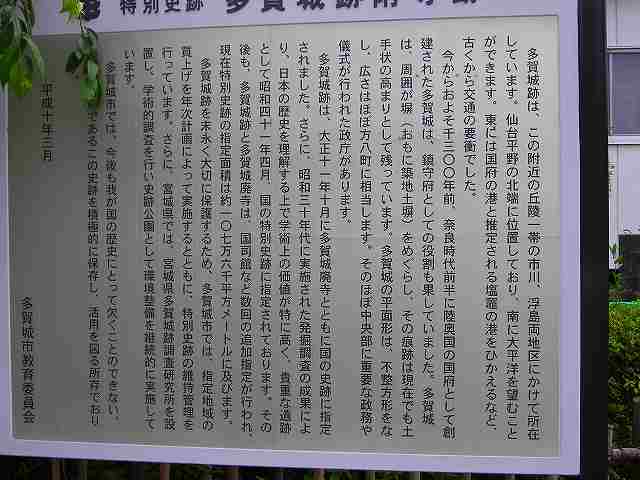 特別史跡 多賀城跡附寺跡
多賀城跡は、この附近の丘陵一帯の市川、浮島両地区にかけて所在
しています。仙台平野の北端に位置しており、南に太平洋を望むこと
ができます。東には国府の港と推定される塩竈の港をひかえるなど、
古くから交通の要衝でした。
今からおよそ千三〇〇年前、奈良時代前半に陸奥国の国府として創
建された多賀城は、鎮守府としての役割も果していました。多賀城
は、周囲が塀(おもに築地土塀)をめぐらし、その痕跡は現在でも土
手状の高まりとして残っています。多賀城の平面形は、不整方形をな
し、広さはほぼ方八町に相当します。そのほぼ中央部に重要な政務や
儀式が行われた政庁があります。
多賀城跡は、大正十一年十月に多賀城廃寺とともに国の史跡に指定
されました。さらに、昭和三十年代に実施された発掘調査の成果によ
り、日本の歴史を理解する上で学術上の価値が特に高く、貴重な遺跡
として昭和四十一年四月、国の特別史跡に指定されております。その
後も、多賀城跡と多賀城廃寺は、国司館など数回の追加指定が行われ、
現在特別史跡の指定面積は約一〇七万六千平方メートルに及びます。
多賀城跡を末永く大切に保護するため、多賀城市では、指定地域の
買上げを年次計画によって実施するとともに、特別史跡の維持管理を
行っています。さらに、宮城県では、宮城県多賀城跡調査研究所を設
置し、学術的調査を行い史跡公園として環境整備を継続的に実施して
います。
多賀城市では、今後も我が国の歴史にとって欠くことのできない、
であるこの史跡を積極的に保存し、活用を図る所存であり
平成十年三月
多賀城市教育委員会